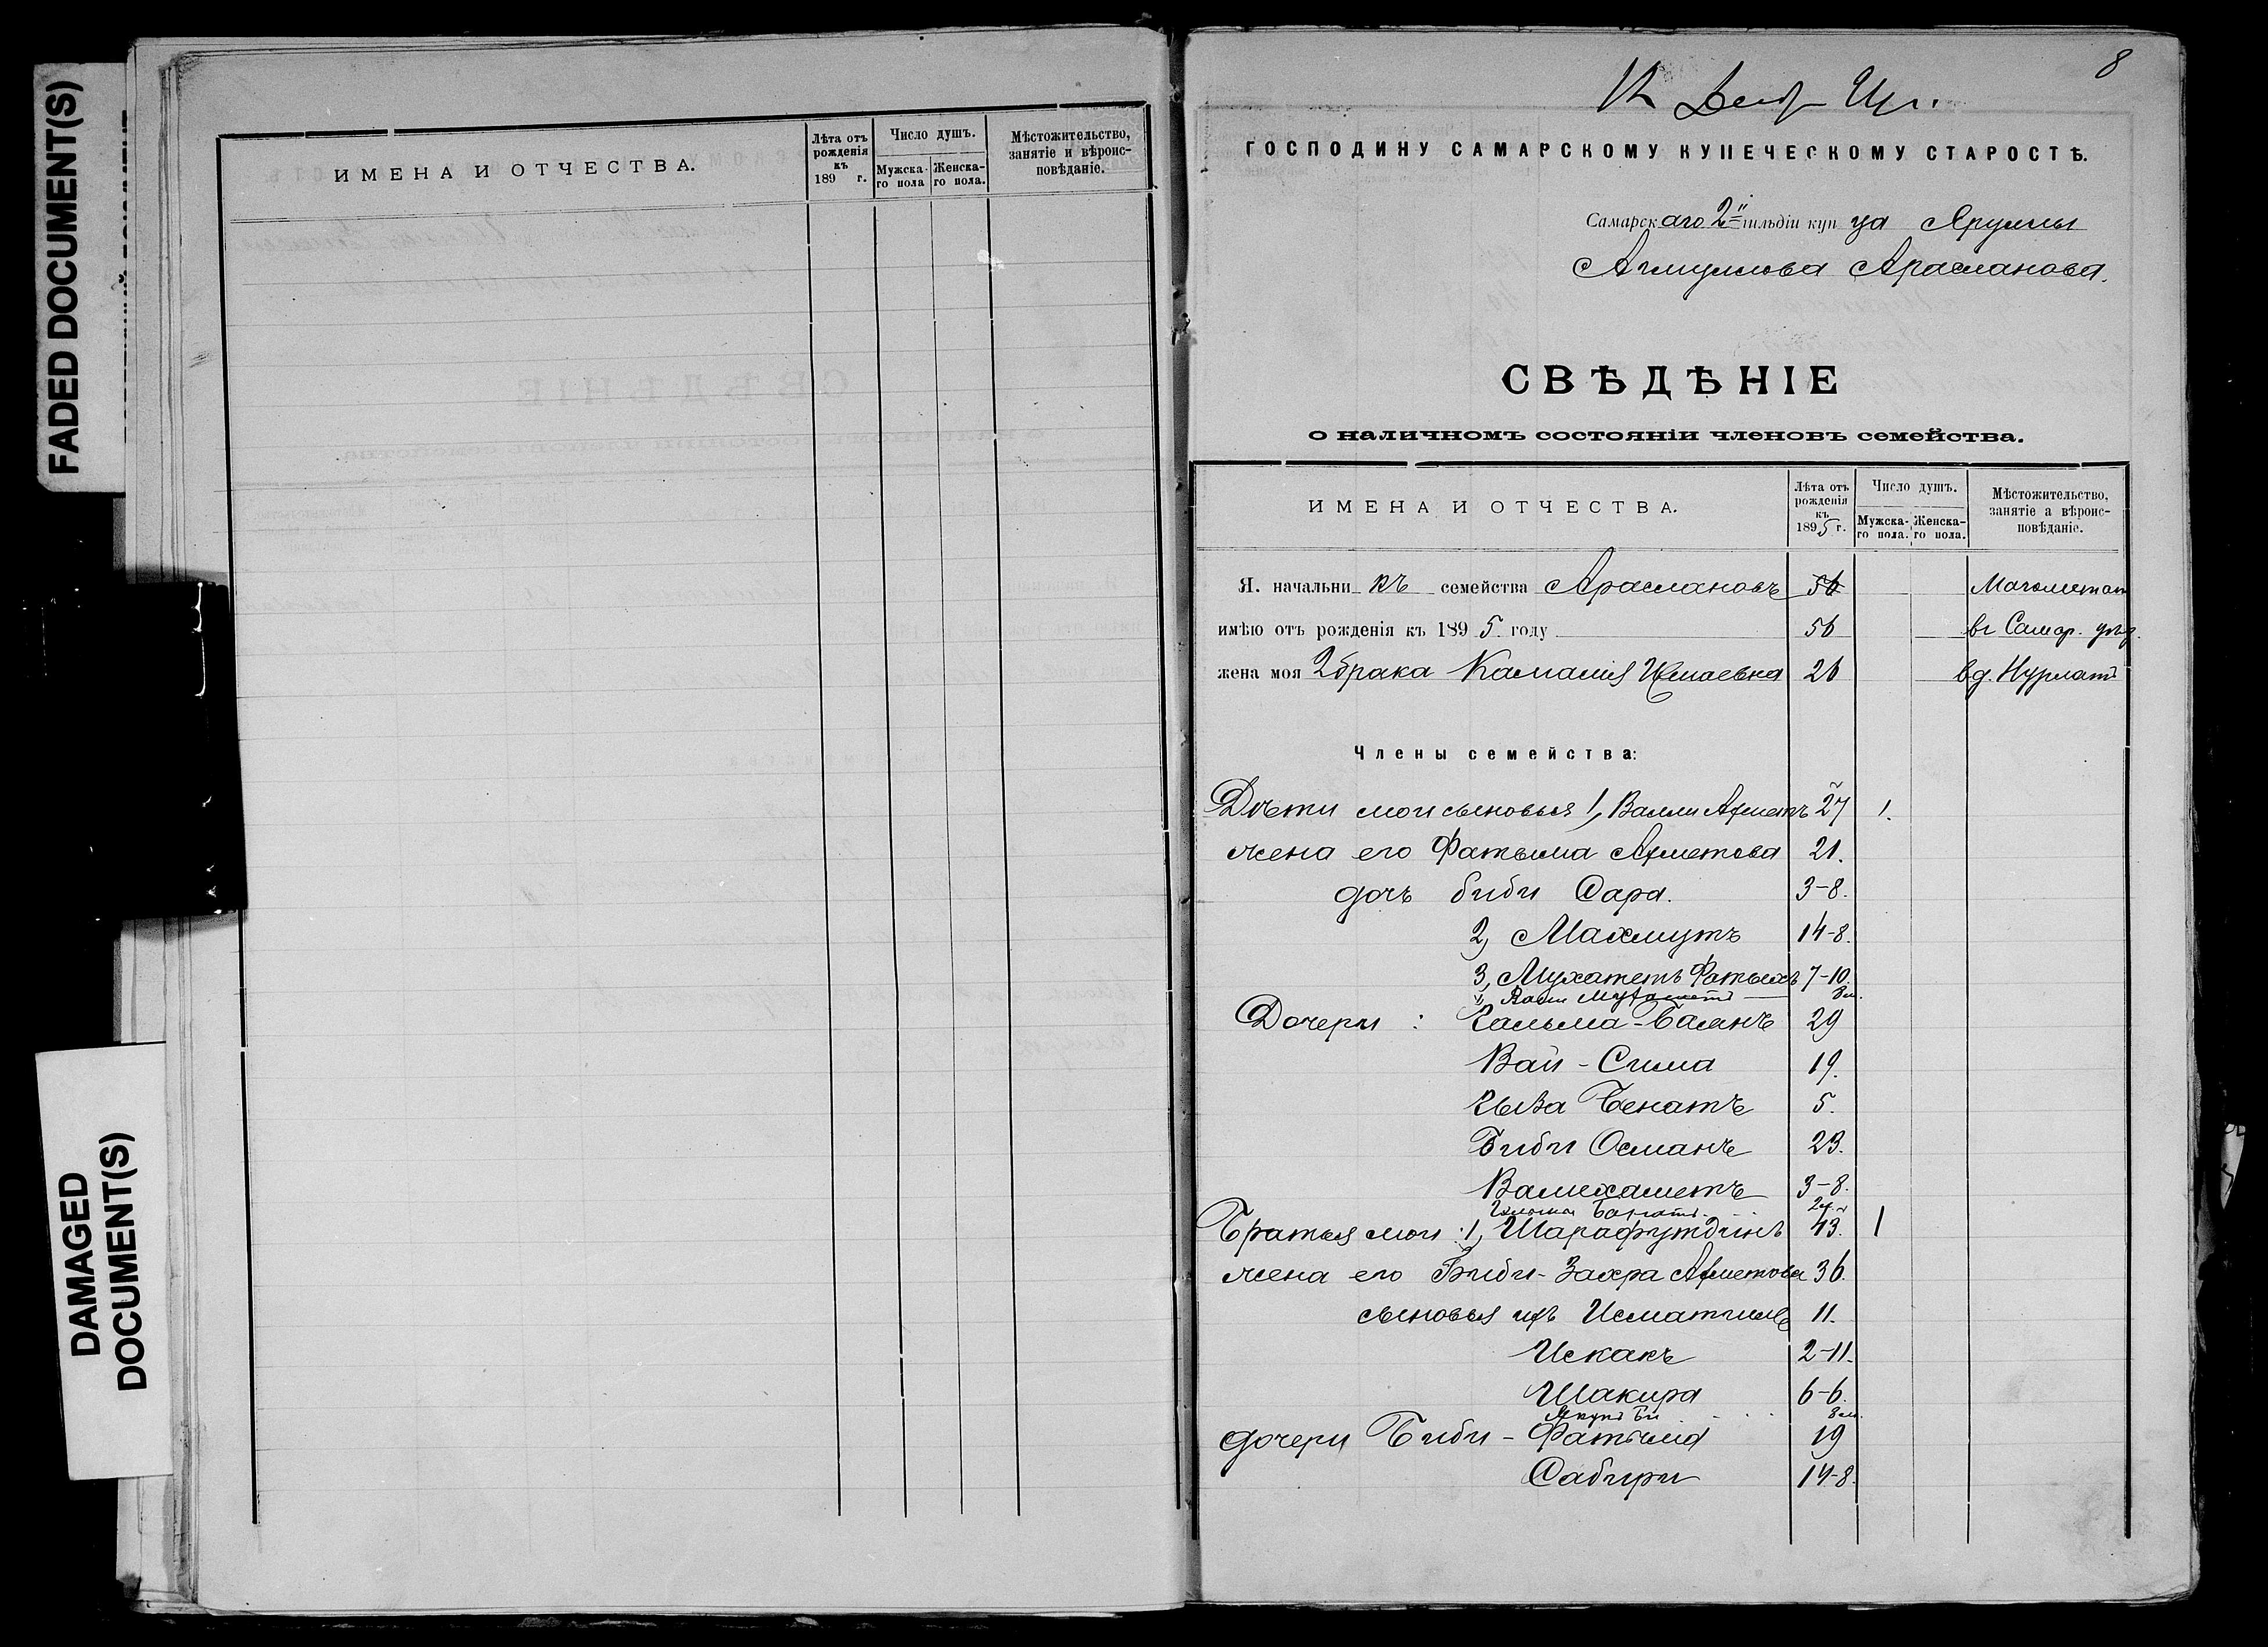 FADED DOCUMENT(S)
DAMAGED
DOCUMENT(S)
ИМЕНА И ОТЧЕСТВА.
Лѣта отъ рожденія къ 189 г.
Число душъ.
Мужска-го пола
Женска-го пола.
Мѣстожительство, занятіе и вѣроис-повѣданіе.
8
ГОСПОДИНУ САМАРСКОМУ КУПЕЧЕСКОМУ СТАРОСТѢ.
Самарскаго 2й гильдіи купца Яруллы
Арасланова.
СВѢДѢНІЕ
о наличномъ состояніи членовъ семейства.
ИМЕНА И ОТЧЕСТВА.
Лѣта отъ рожденія къ 1895 г.
Число душъ.
Мужска-го пола.
Женска-го пола.
Мѣстожительство, занятіе а вѣроис-повѣданіе.
Я. начальникъ семейства Араслановъ 56 Магометан
имѣю отъ рожденія къ 1895 году 56 вг Самар. уѣзд.
жена моя 2 брака Камалия 26 в д. Нурлатъ
Члены семейства:
Дѣти мои сыновья 1, Валли Ахметъ 27 1.
жена его Фатыма Ахметова 21.
дочь биби Сара. 3-8.
2, Махмутъ 14-8.
3, Мухаметъ Фатыхъ 7-10.
8 м.
Дочери : 29
Вай-Сима 19.
Бенатъ 5.
Биби Османъ 23.
Валихаметъ 3-8.
Братья мои: 1, Шарафутдинъ 43. 1
жена его Биби-Захра Ахметова 36.
сыновья ихъ Исматилъ 11.
Искакъ 2-11.
Шакира 6-6.
8 м.
дочери Биби-Фатыма 19
Сабири 14-8.